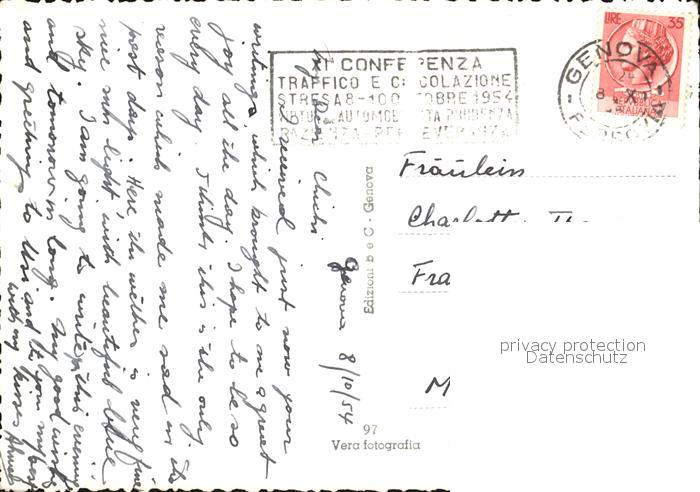 Genova 8/10/54
My Dear
received just now your
writings, which brought to me a great
joy all the day. I hope to be so
every day. I think, this is the only
reason which made me sad in the
past days. Here the wether is very fine
nice sun light, with beautiful blue
sky. I am going to write this evening
and tomorrow long. My good wishes
and greeting to Uri and to you my best
with my kisses
XIª CONFERENZA
TRAFFICO E CIRCOLAZIONE
STRESA 8-10 OTTOBRE 1954
AUTOMOBILISTA PRUDENZA
GENOVA
FERROVIA
LIRE 35
REPUBBLICA
ITALIANA
Fräulein
Charlott
Fra
M
privacy protection
Datenschutz
Edizioni b e C - Genova
97
Vera fotografia